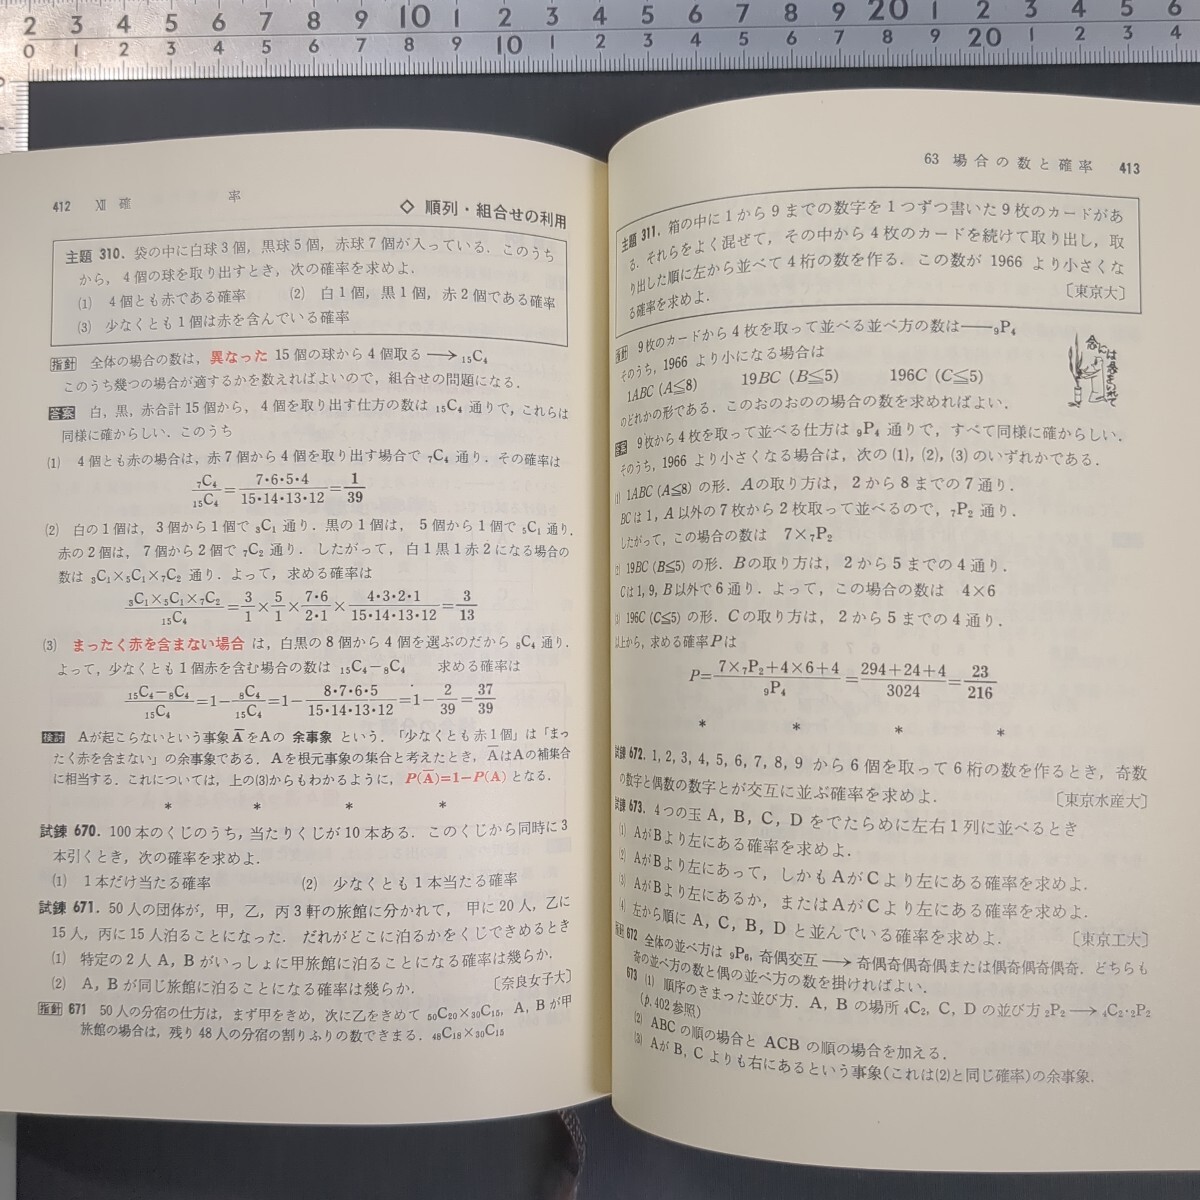 2 3 4 5 6 7 8 9 10 1 2 3 4 5 6 7 8 9 20 1 2 3 4 5 6
0 1 2 3 4 5 6 7 8 9 10 1 2 3 4 5 6 7 8 9 20 1 2 3 4
412 Ⅻ 確 率
◇ 順列・組合せの利用
主題 310. 袋の中に白球3個，黒球5個，赤球7個が入っている．このうち
から，4個の球を取り出すとき，次の確率を求めよ．
(1) 4個とも赤である確率 (2) 白1個，黒1個，赤2個である確率
(3) 少なくとも1個は赤を含んでいる確率
指針 全体の場合の数は，異なった 15個の球から4個取る ⟶ ₁₅C₄
このうち幾つの場合が適するかを数えればよいので，組合せの問題になる．
答案 白，黒，赤合計15個から，4個を取り出す仕方の数は ₁₅C₄ 通りで，これらは
同様に確からしい．このうち
(1) 4個とも赤の場合は，赤7個から4個を取り出す場合で ₇C₄ 通り．その確率は
₇C₄/₁₅C₄=7・6・5・4/15・14・13・12=1/39
(2) 白の1個は，3個から1個で ₃C₁ 通り．黒の1個は，5個から1個で ₅C₁ 通り．
赤の2個は，7個から2個で ₇C₂ 通り．したがって，白1黒1赤2になる場合の
数は ₃C₁×₅C₁×₇C₂ 通り．よって，求める確率は
₃C₁×₅C₁×₇C₂/₁₅C₄=3/1×5/1×7・6/2・1×4・3・2・1/15・14・13・12=3/13
(3) まったく赤を含まない場合 は，白黒の8個から4個を選ぶのだから ₈C₄ 通り．
よって，少なくとも1個赤を含む場合の数は ₁₅C₄−₈C₄ 求める確率は
₁₅C₄−₈C₄/₁₅C₄=1−₈C₄/₁₅C₄=1−8・7・6・5/15・14・13・12=1−2/39=37/39
検討 Aが起こらないという事象A̅をAの 余事象 という．「少なくとも赤1個」は「まっ
たく赤を含まない」の余事象である．Aを根元事象の集合と考えたとき，A̅はAの補集合
に相当する．これについては，上の(3)からもわかるように，P(A̅)=1−P(A) となる．
* * * *
試錬 670. 100本のくじのうち，当たりくじが10本ある．このくじから同時に3
本引くとき，次の確率を求めよ．
(1) 1本だけ当たる確率 (2) 少なくとも1本当たる確率
試錬 671. 50人の団体が，甲，乙，丙3軒の旅館に分かれて，甲に20人，乙に
15人，丙に15人泊ることになった．だれがどこに泊るかをくじできめるとき
(1) 特定の2人A，Bがいっしょに甲旅館に泊ることになる確率は幾らか．
(2) A，Bが同じ旅館に泊ることになる確率は幾らか． 〔奈良女子大〕
指針 671 50人の分宿の仕方は，まず甲をきめ，次に乙をきめて ₅₀C₂₀×₃₀C₁₅，A，Bが甲
旅館の場合は，残り48人の分宿の割りふりの数できまる．₄₈C₁₈×₃₀C₁₅
63 場合の数と確率 413
主題 311. 箱の中に1から9までの数字を1つずつ書いた9枚のカードがあ
る．それらをよく混ぜて，その中から4枚のカードを続けて取り出し，取
り出した順に左から並べて4桁の数を作る．この数が1966より小さくな
る確率を求めよ． 〔東京大〕
指針 9枚のカードから4枚を取って並べる並べ方の数は——₉P₄
そのうち，1966より小になる場合は
1ABC (A≦8) 19BC (B≦5) 196C (C≦5)
のどれかの形である．このおのおのの場合の数を求めればよい．
答案 9枚から4枚を取って並べる仕方は ₉P₄ 通りで，すべて同様に確からしい．
そのうち，1966より小さくなる場合は，次の(1)，(2)，(3)のいずれかである．
(1) 1ABC (A≦8) の形．Aの取り方は，2から8までの7通り．
BCは1，A以外の7枚から2枚取って並べるので，₇P₂ 通り．
したがって，この場合の数は 7×₇P₂
(2) 19BC (B≦5) の形．Bの取り方は，2から5までの4通り．
Cは1，9，B以外で6通り．よって，この場合の数は 4×6
(3) 196C (C≦5) の形．Cの取り方は，2から5までの4通り．
以上から，求める確率Pは
P=7×₇P₂+4×6+4/₉P₄=294+24+4/3024=23/216
* * * *
試錬 672. 1，2，3，4，5，6，7，8，9 から6個を取って6桁の数を作るとき，奇数
の数字と偶数の数字とが交互に並ぶ確率を求めよ． 〔東京水産大〕
試錬 673. 4つの玉A，B，C，Dをでたらめに左右1列に並べるとき
(1) AがBより左にある確率を求めよ．
(2) AがBより左にあって，しかもAがCより左にある確率を求めよ．
(3) AがBより左にあるか，またはAがCより左にある確率を求めよ．
(4) 左から順にA，C，B，Dと並んでいる確率を求めよ． 〔東京工大〕
指針 672 全体の並べ方は ₉P₆，奇偶交互 ⟶ 奇偶奇偶奇偶または偶奇偶奇偶奇．どちらも
奇の並べ方の数と偶の並べ方の数を掛ければよい．
673 (1) 順序のきまった並び方．A，Bの場所 ₄C₂，C，Dの並び方 ₂P₂ ⟶ ₄C₂・₂P₂
(p.402参照)
(2) ABCの順の場合とACBの順の場合を加える．
(3) AがB，Cよりも右にあるという事象(これは(2)と同じ確率)の余事象．